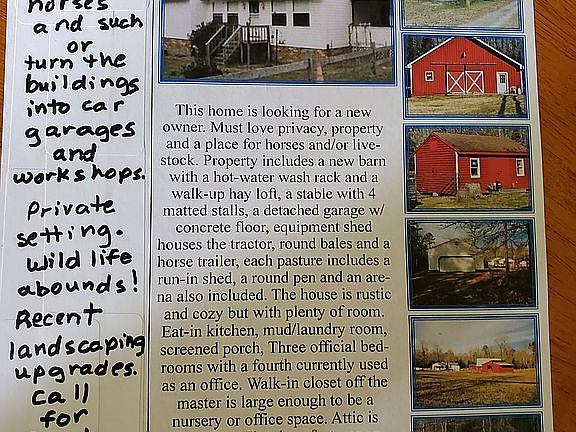 horses
and such
or
turn the
buildings
into car
garages
and
workshops.
Private
setting.
wild life
abounds!
Recent
landscaping
upgrades.
Call
for
This home is looking for a new
owner. Must love privacy, property
and a place for horses and/or live-
stock. Property includes a new barn
with a hot-water wash rack and a
walk-up hay loft, a stable with 4
matted stalls, a detached garage w/
concrete floor, equipment shed
houses the tractor, round bales and a
horse trailer, each pasture includes a
run-in shed, a round pen and an are-
na also included. The house is rustic
and cozy but with plenty of room.
Eat-in kitchen, mud/laundry room,
screened porch, Three official bed-
rooms with a fourth currently used
as an office. Walk-in closet off the
master is large enough to be a
nursery or office space. Attic is